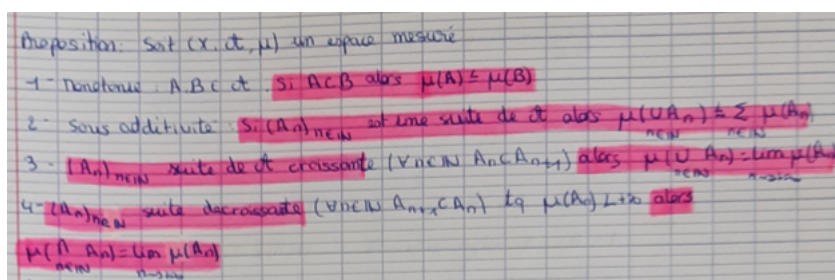 Proposition: Soit (X, 𝒜, μ) un espace mesuré
1 - Monotonie . A, B ∈ 𝒜 . Si A⊂B alors μ(A) ≤ μ(B)
2 - Sous additivité . Si (An)n∈ℕ est une suite de 𝒜 alors μ(∪n∈ℕ An) ≤ Σn∈ℕ μ(An)
3 - (An)n∈ℕ suite de 𝒜 croissante (∀n∈ℕ An⊂An+1) alors μ(∪n∈ℕ An) = lim n→+∞ μ(An)
4 - (An)n∈ℕ suite decroissante (∀n∈ℕ An+1⊂An) tq μ(A0) < +∞ alors
μ(∩n∈ℕ An) = lim n→+∞ μ(An)